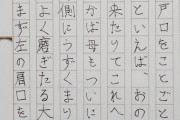 戸口をことごと
といえば、おの
来たりてこれへ
かば母もついに
側にうずくまり
よく磨ぎたる大
まず左の肩口を